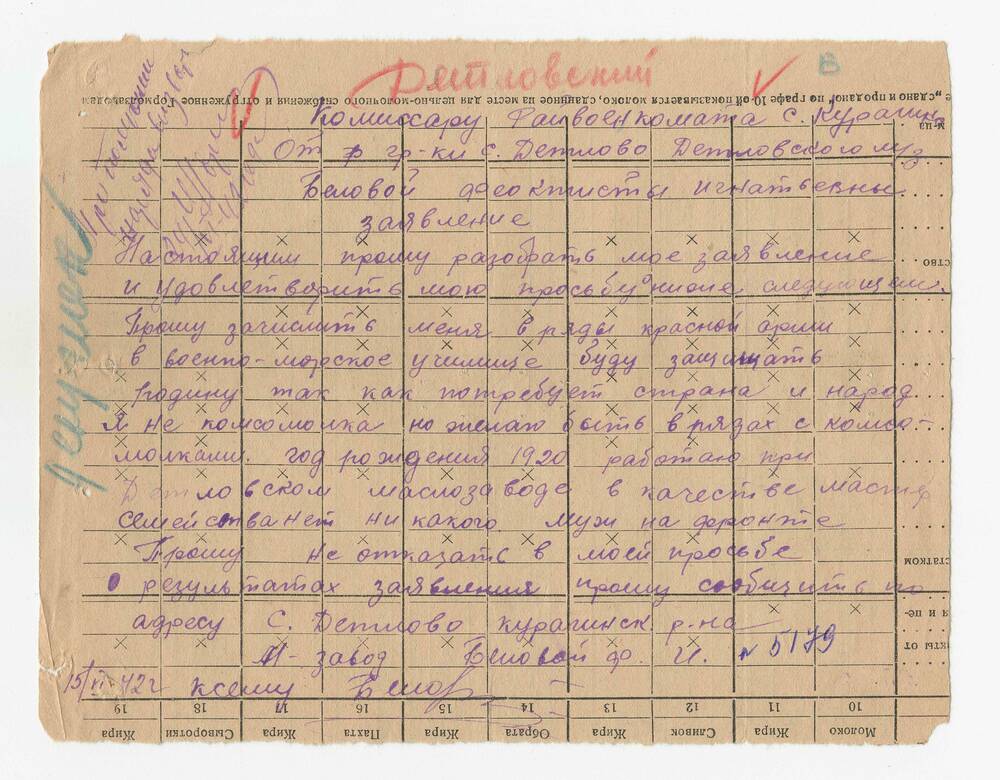 Детловский
В
Комиссару Райвоенкомата с. Курагин
От гр-ки с. Детлово Детловского м/з
Беловой Феоктисты Игнатьевны
заявление
Настоящим прошу разобрать мое заявление
и удовлетворить мою просьбу о следующем.
Прошу зачислить меня в ряды красной армии
в военно-морское училище буду защищать
родину так как потребует страна и народ.
Я не комсомолка но желаю быть в рядах с комсо-
молками. год рождения 1920 работаю при
Детловском маслозаводе в качестве мастер
семейства нет ни какого муж на фронте
Прошу не отказать в моей просьбе
о результатах заявления прошу сообщить по
адресу С. Детлово курагинск. р-на
М-завод Беловой Ф. И. № 5179
15/VI-42г к сему Белов
19 18 17 16 15 14 13 12 11 10
Жира Сыворотки Жира Пахта Жира Обрата Жира Сливок Жира Молоко
е „сдано и продано" по графе 10-ой показывается молоко, сданное на месте для цельно-молочного снабжения и отгруженное Гормолзаводам
м-ца
ство
статком
я и пе-
кты от